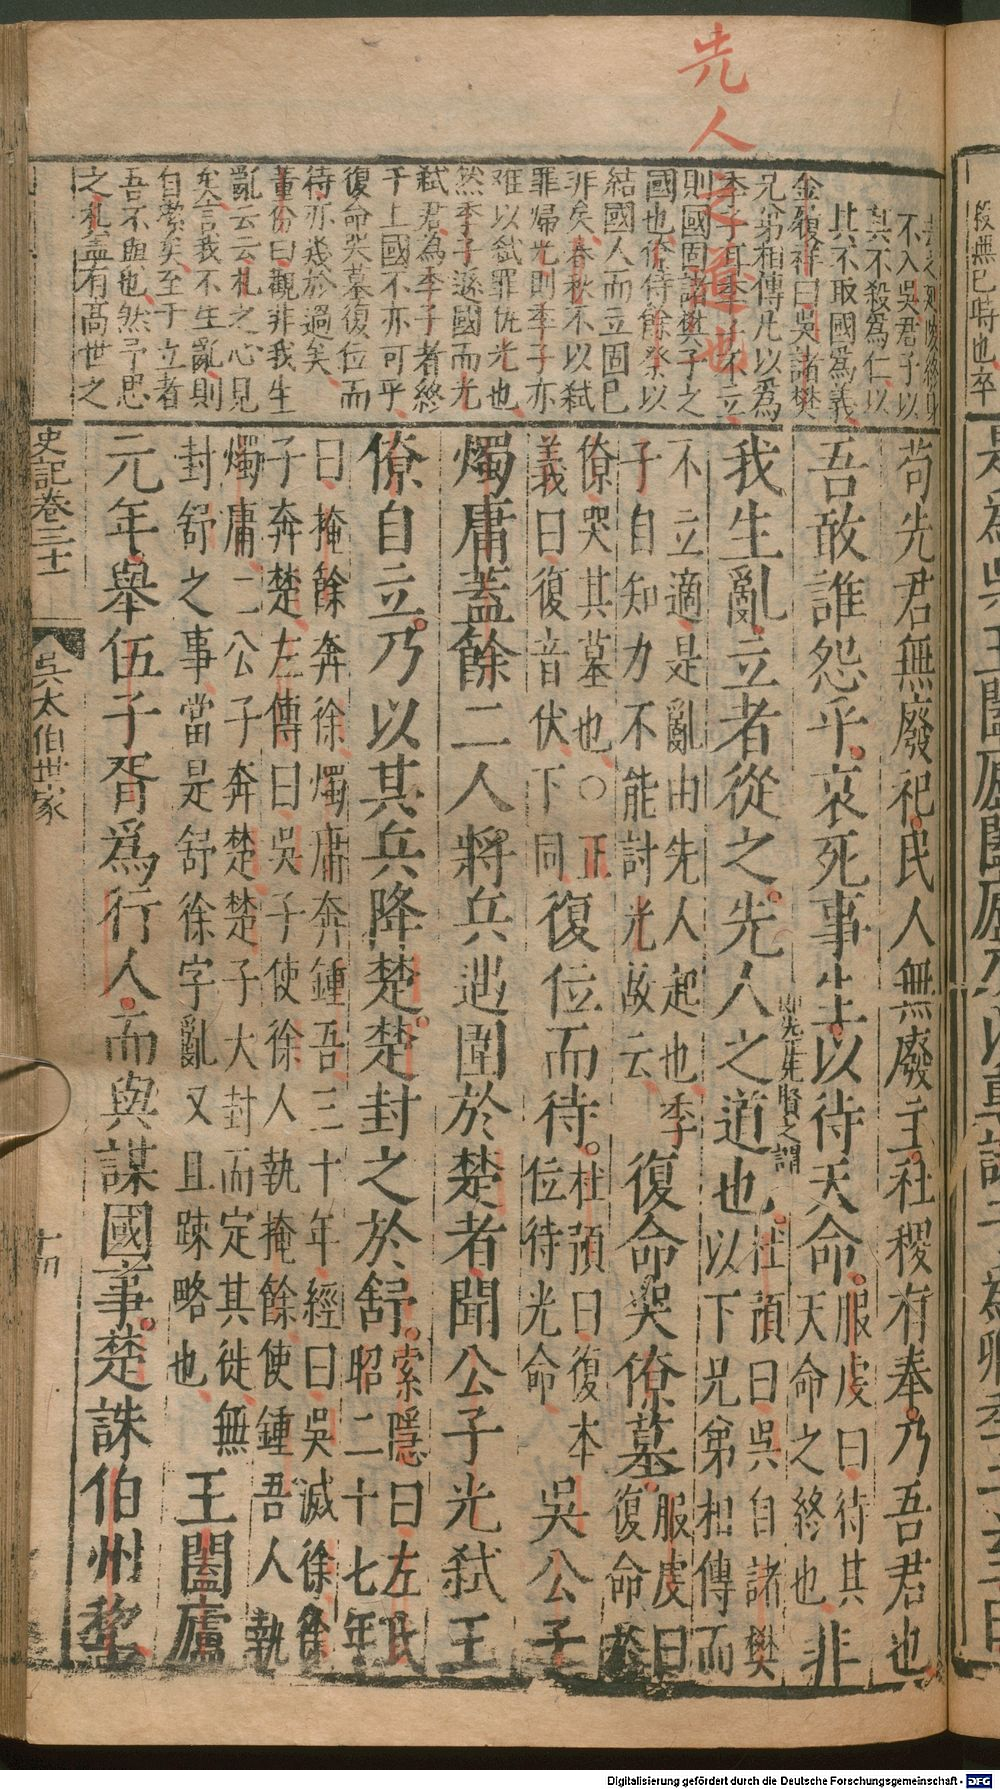 先人之道也
不入吳君子以
其不殺為仁以
其不取國為義
金履祥曰吳諸樊
兄弟相傳凡以為
季子耳季子不立
則國固諸樊子之
國也僚恃餘眛以
結國人而立固已
非矣春秋不以弑
罪歸光則季子亦
難以弑罪侂光也
然季子遜國而光
弑君為季子者終
于上國不亦可乎
復命哭墓復位而
待亦幾於過矣
董份曰觀非我生
亂云云札之心見
矣言我不生亂則
自潔矣至于立者
吾不與也然予思
之札盖有髙世之
苟先君無廢祀民人無廢主社稷有奉乃吾君也
吾敢誰怨乎哀死事生以待天命服虔曰待其天命之終也非
即先先賢之謂
我生亂立者從之先人之道也杜預曰吳自諸樊以下兄弟相傳而
不立適是亂由先人起也季子自知力不能討光故云復命哭僚墓服虔曰復命
僚哭其墓也○正義曰復音伏下同復位而待杜預曰復本位待光命吳公子
燭庸蓋餘二人將兵遇圍於楚者聞公子光弑王
僚自立乃以其兵降楚楚封之於舒索隱曰左氏昭二十七年
曰掩餘奔徐燭庸奔鍾吾三十年經曰吳滅徐徐
子奔楚左傳曰吳子使徐人執掩餘使鍾吾人執
燭庸二公子奔楚楚子大封而定其徙無
封舒之事當是舒徐字亂又且踈略也王闔廬
元年舉伍子胥爲行人而與謀國事楚誅伯州犂
史記卷三十一
吳太伯世家
十四
殺無已時也卒
Digitalisierung gefördert durch die Deutsche Forschungsgemeinschaft - DFG